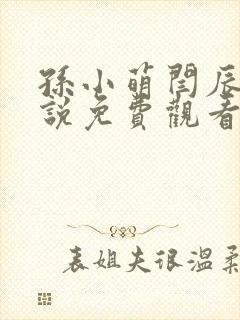 孫小萌閆辰
說免費觀看
表姐夫很溫柔